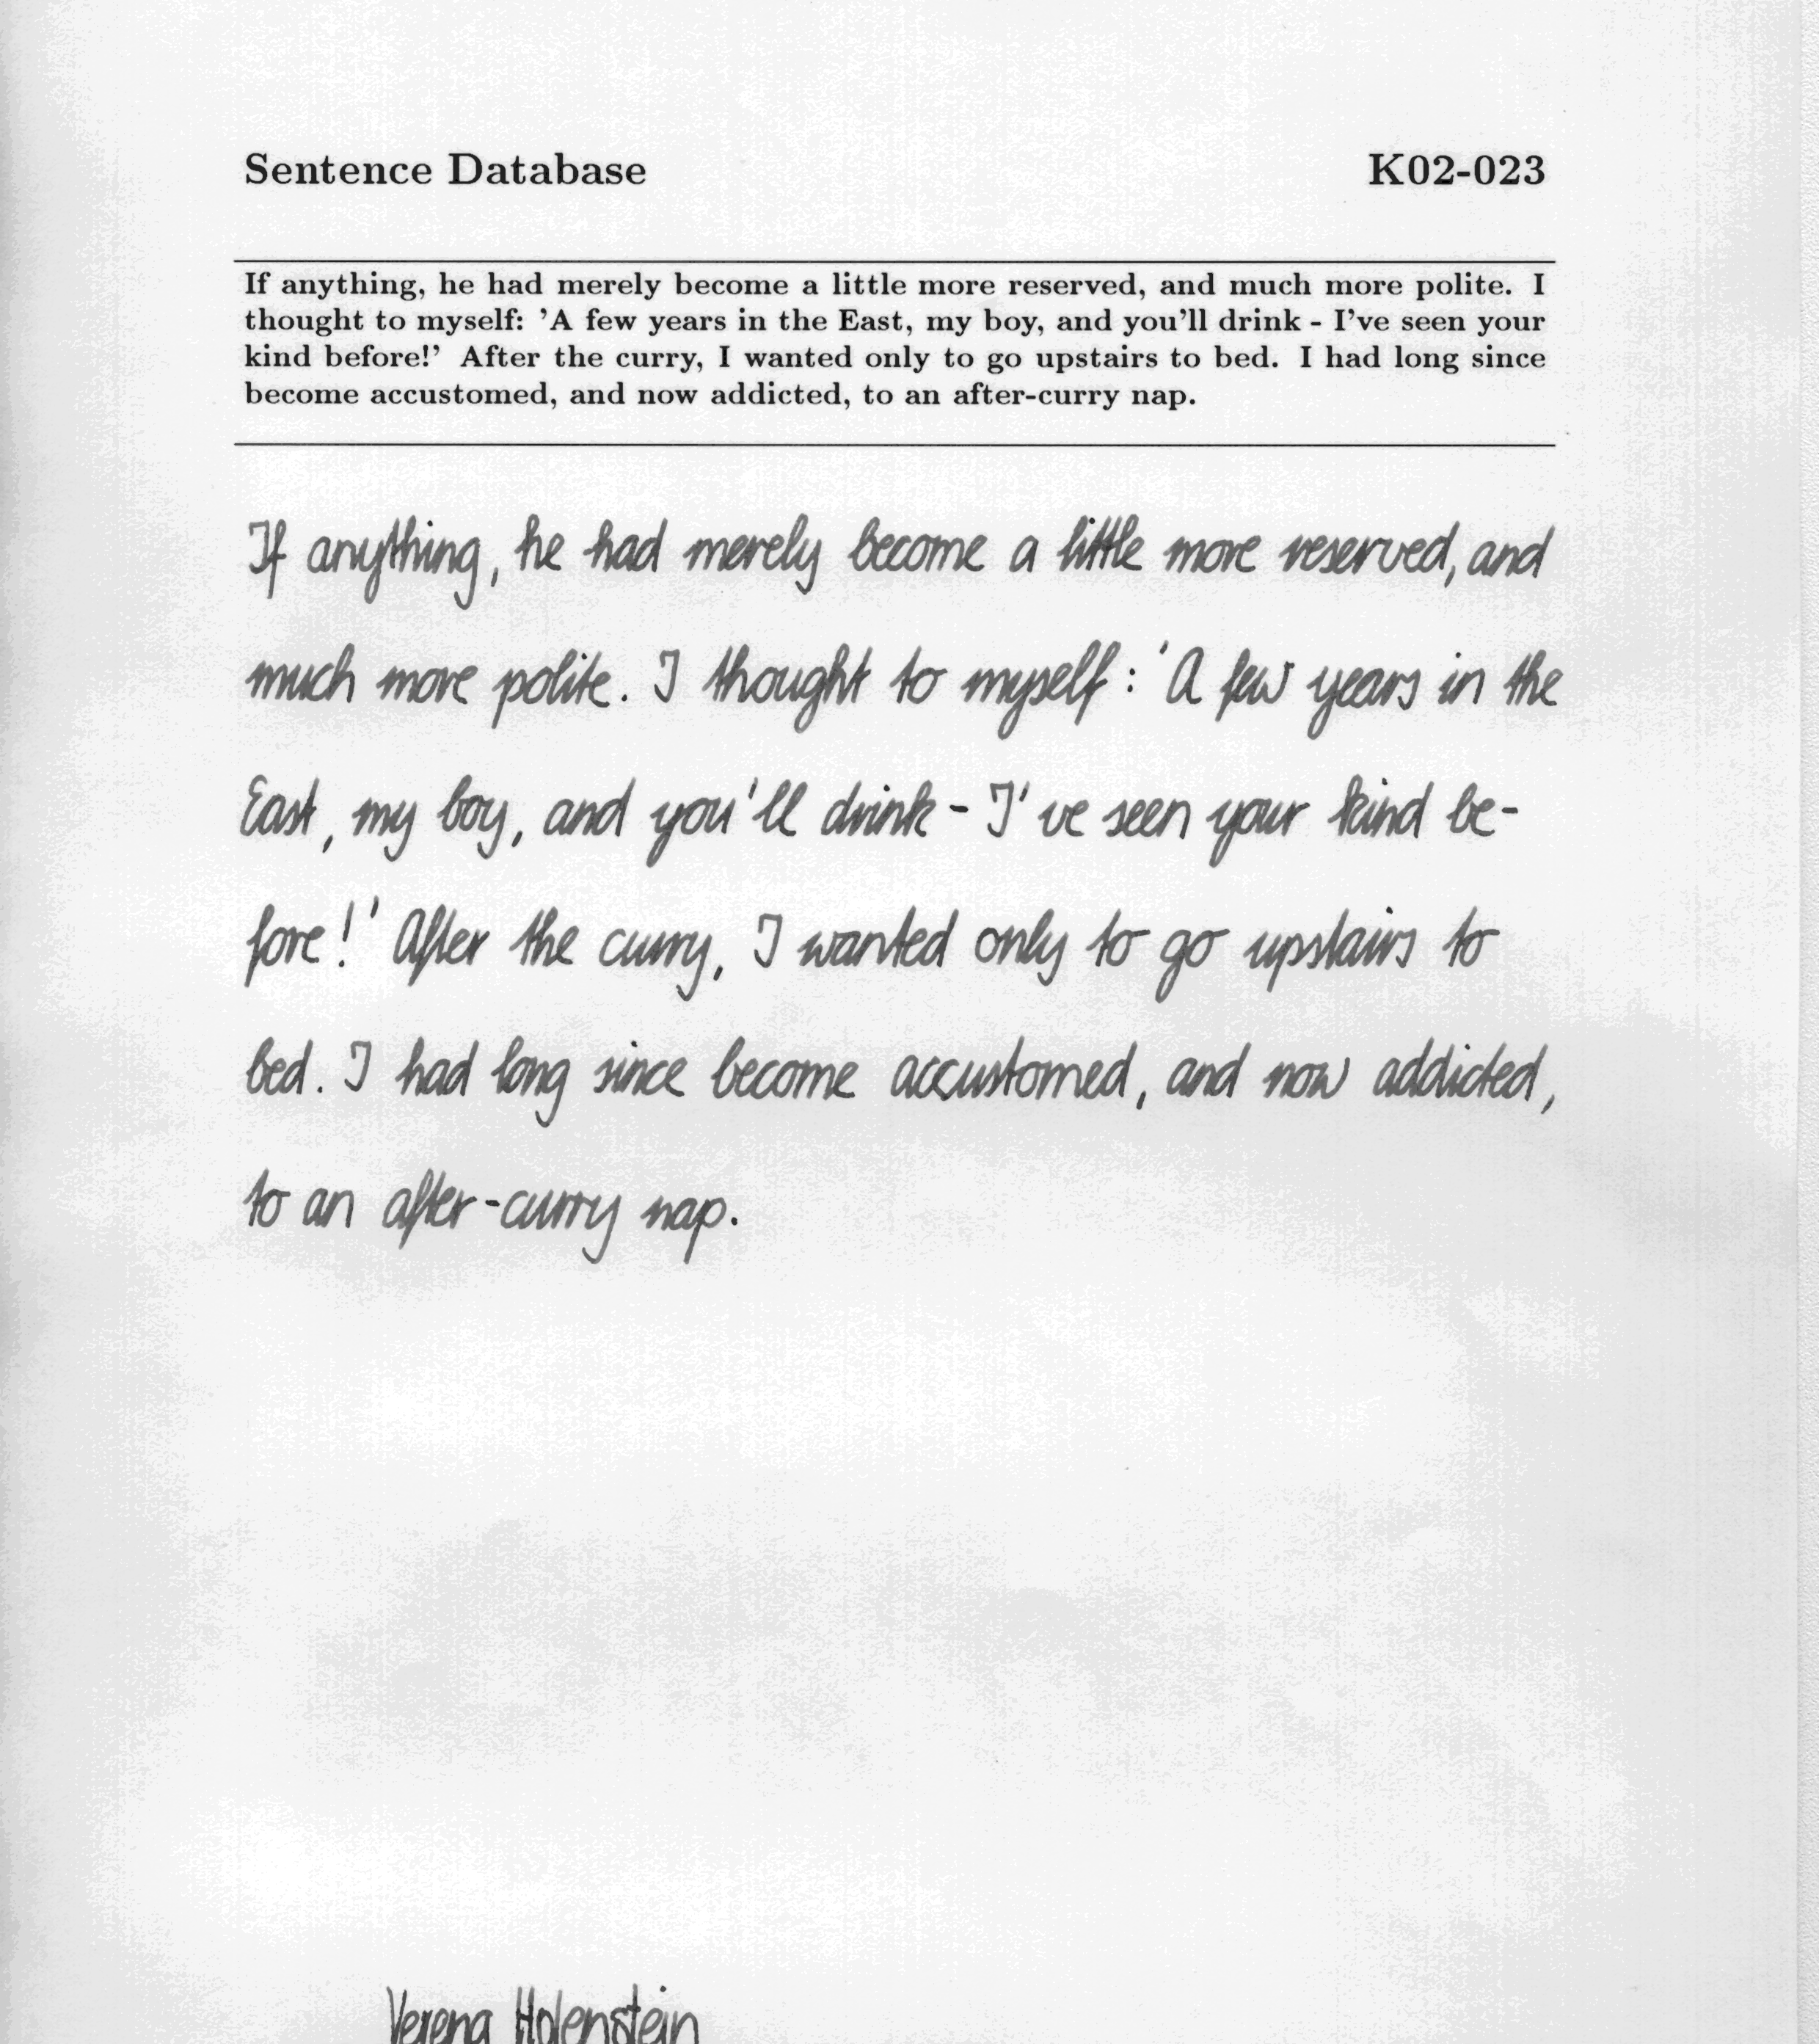 Sentence Database K02-023
If anything, he had merely become a little more reserved, and much more polite. I
thought to myself: 'A few years in the East, my boy, and you'll drink - I've seen your
kind before!' After the curry, I wanted only to go upstairs to bed. I had long since
become accustomed, and now addicted, to an after-curry nap.
If anything, he had merely become a little more reserved, and
much more polite. I thought to myself: 'A few years in the
East, my boy, and you'll drink - I've seen your kind be-
fore!' After the curry, I wanted only to go upstairs to
bed. I had long since become accustomed, and now addicted,
to an after-curry nap.
Verena Holenstein